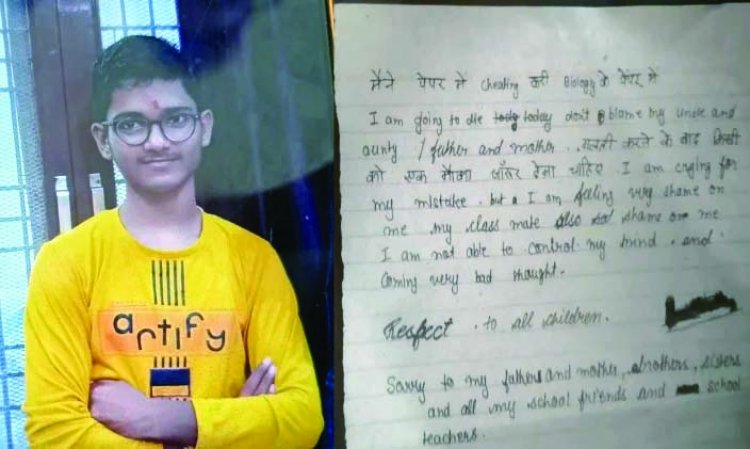 artify
मैने पेपर मे cheating करी Biology के पेपर मे
I am going to die today don't blame my uncle and
aunty / father and mother. गलती करने के बाद किसी
को एक मौका जरूर देना चाहिए. I am crying for
my mistake. but I am feeling very shame on
me my class mate also shame on me
I am not able to control my mind. and
coming very bad thought.
Respect. to all children.
Sorry to my father and mother, brothers, sisters
and all my school friends and school
teachers.